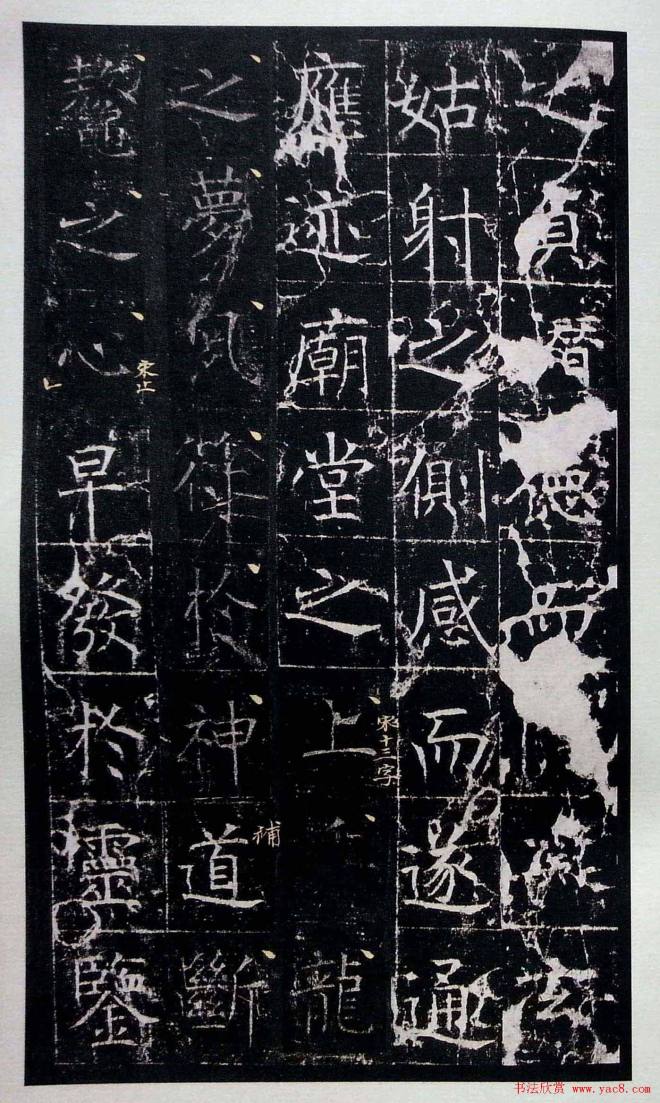 之德而
姑射之側感而遂通
應迹廟堂之上龍
宋十三字
之夢風符於神道斷
補
鼇之心早發於靈鑒
宋止
书法欣赏 www.yac8.com